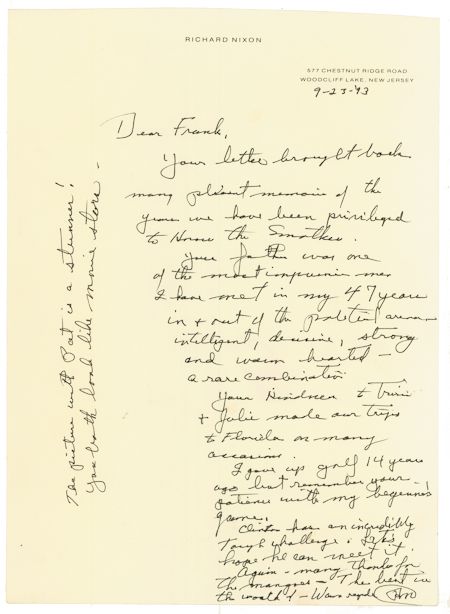 RICHARD NIXON
577 CHESTNUT RIDGE ROAD
WOODCLIFF LAKE, NEW JERSEY
9-23-93
Dear Frank,
Your letter brought back
many pleasant memories of the
years we have been privileged
to know the Smathers.
Your father was one
of the most impressive men
I have met in my 47 years
in & out of the political arena —
intelligent, decisive, strong
and warm hearted —
a rare combination
Your kindness to
& Julie made our trips
to Florida on many
occasions.
I gave up golf 14 years
ago but remember your
patience with my beginner's
game.
Clinton has an incredibly
tough challenge. Let's
hope he can meet it.
Again - many thanks for
the mangoes - The best in
the world! - Warm regards RN
The picture with Pat is a stunner!
You both look like movie stars -